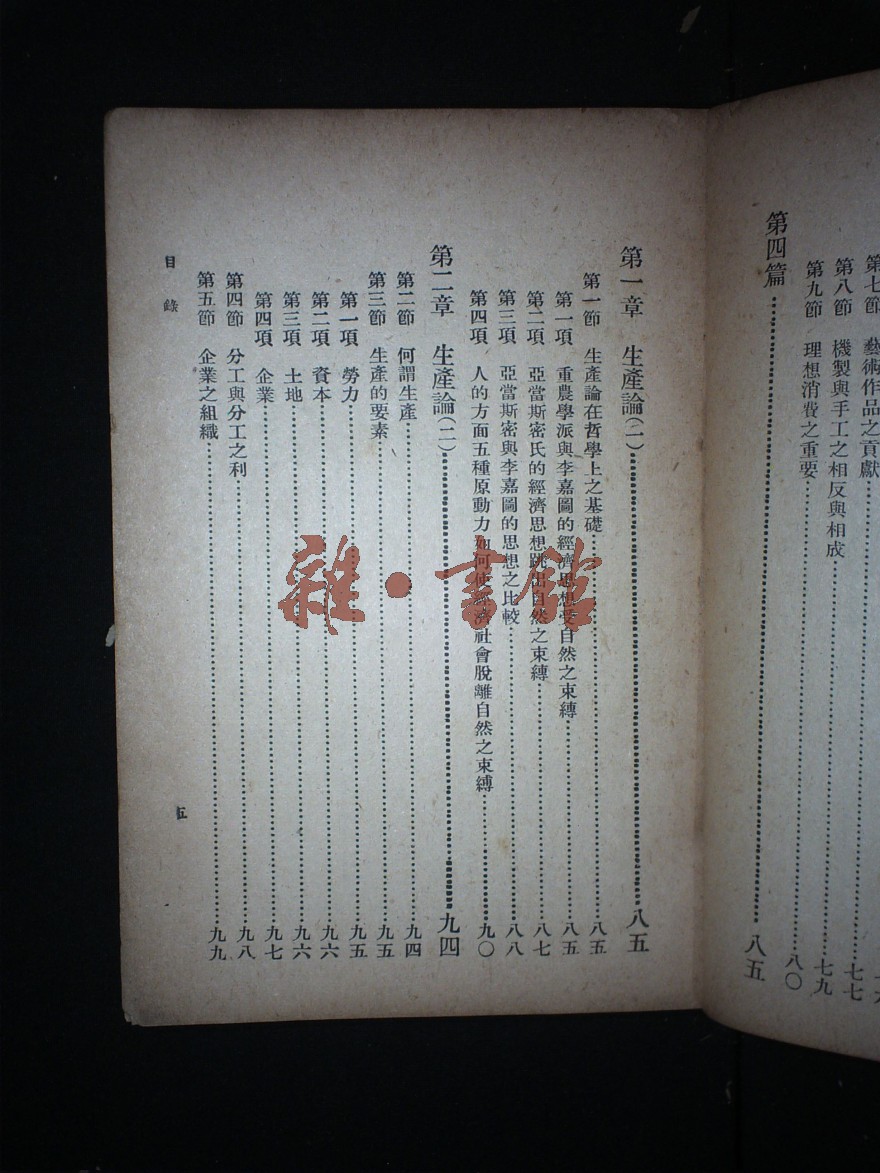 第七節 藝術作品之貢獻……七七
第八節 機製與手工之相反與相成……七九
第九節 理想消費之重要……八〇
第四篇……八五
第一章 生產論(一)……八五
第一節 生產論在哲學上之基礎……八五
第一項 重農學派與李嘉圖的經濟思想受自然之束縛……八五
第二項 亞當斯密氏的經濟思想跳出自然之束縛……八七
第三項 亞當斯密與李嘉圖的思想之比較……八八
第四項 人的方面五種原動力如何使經濟社會脫離自然之束縛……九〇
第二章 生產論(二)……九四
第二節 何謂生產……九四
第三節 生產的要素……九五
第一項 勞力……九五
第二項 資本……九六
第三項 土地……九六
第四項 企業……九七
第四節 分工與分工之利……九八
第五節 企業之組織……九九
目錄
五
雜·書館